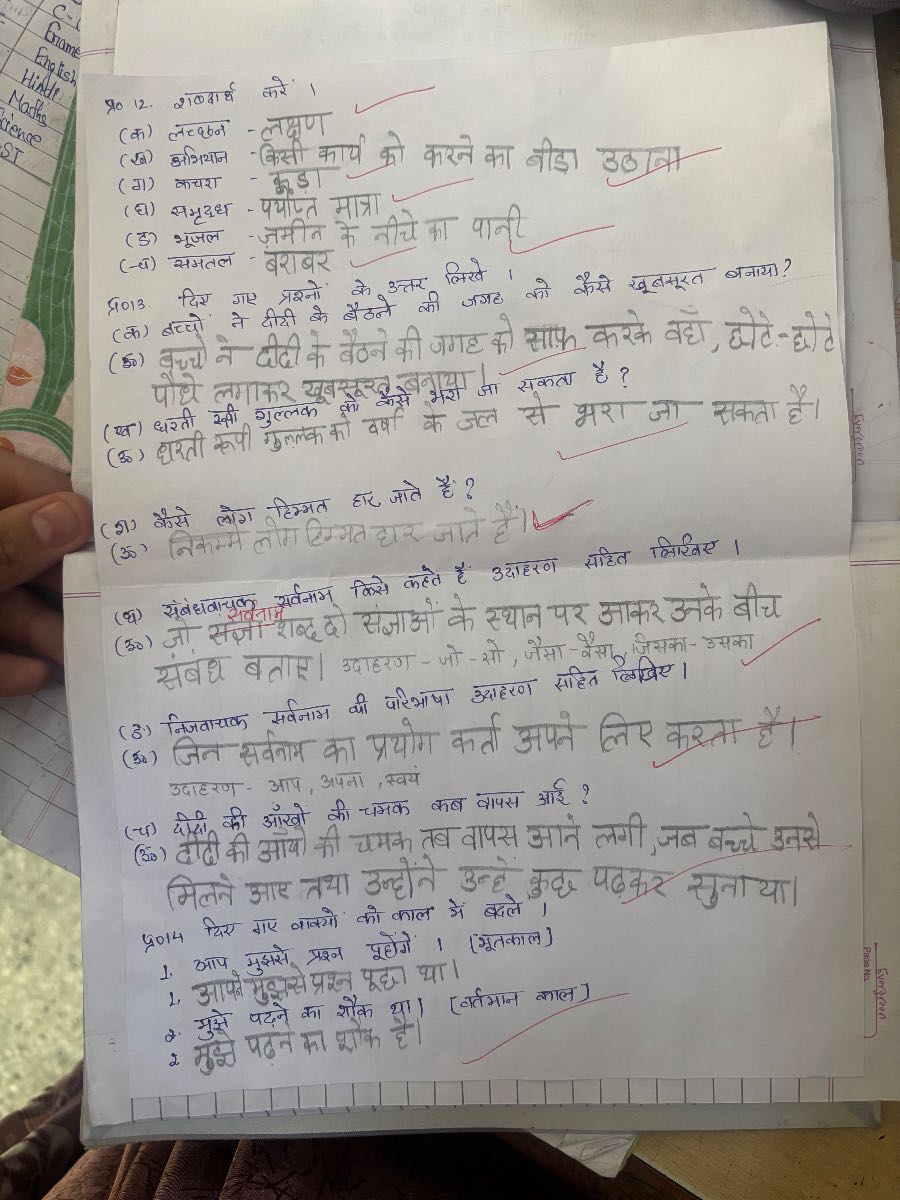 C-
Exame
English
Hindi
Maths
Science
SST
प्र० 12. शब्दार्थ करें ।
(क) लच्छन - लक्षण
(ख) अभियान - किसी कार्य को करने का बीड़ा उठाना
(ग) कचरा - कूड़ा
(घ) समृद्ध - पर्याप्त मात्रा
(ङ) भूजल - ज़मीन के नीचे का पानी
(च) समतल - बराबर
प्र०13. दिए गए प्रश्नों के उत्तर लिखें ।
(क) बच्चों ने दीदी के बैठने की जगह को कैसे खूबसूरत बनाया?
(ऊ) बच्चो ने दीदी के बैठने की जगह को साफ़ करके वहाँ, छोटे-छोटे
पौधे लगाकर खूबसूरत बनाया।
(ख) धरती रूपी गुल्लक को कैसे भरा जा सकता है ?
(ऊ) धरती रूपी गुल्लक को वर्षा के जल से भरा जा सकता है।
(ग) कैसे लोग हिम्मत हार जाते हैं ?
(ऊ) निकम्मे लोग हिम्मत हार जाते हैं।
(घ) संबंधवाचक सर्वनाम किसे कहते हैं उदाहरण सहित लिखिए ।
सर्वनाम
(ऊ) जो संज्ञा शब्द दो संज्ञाओं के स्थान पर आकर उनके बीच
संबंध बताए। उदाहरण - जो - सो , जैसा - वैसा , जिसका - उसका
(ङ) निजवाचक सर्वनाम की परिभाषा उदाहरण सहित लिखिए ।
(ऊ) जिन सर्वनाम का प्रयोग कर्ता अपने लिए करता है।
उदाहरण - आप , अपना , स्वयं
(च) दीदी की आँखो की चमक कब वापस आई ?
(ऊ) दीदी की आँखों की चमक तब वापस आने लगी , जब बच्चे उनसे
मिलने आए तथा उन्होंने उन्हें कुछ पढ़कर सुनाया।
प्र०14 दिए गए वाक्यों को काल में बदले ।
1. आप मुझसे प्रश्न पूछेंगें । (भूतकाल)
1. आपने मुझसे प्रश्न पूछा था।
2. मुझे पढ़ने का शौक था। (वर्तमान काल)
2 मुझे पढ़ने का शौक है।
Evergreen
Evergreen
Page No.